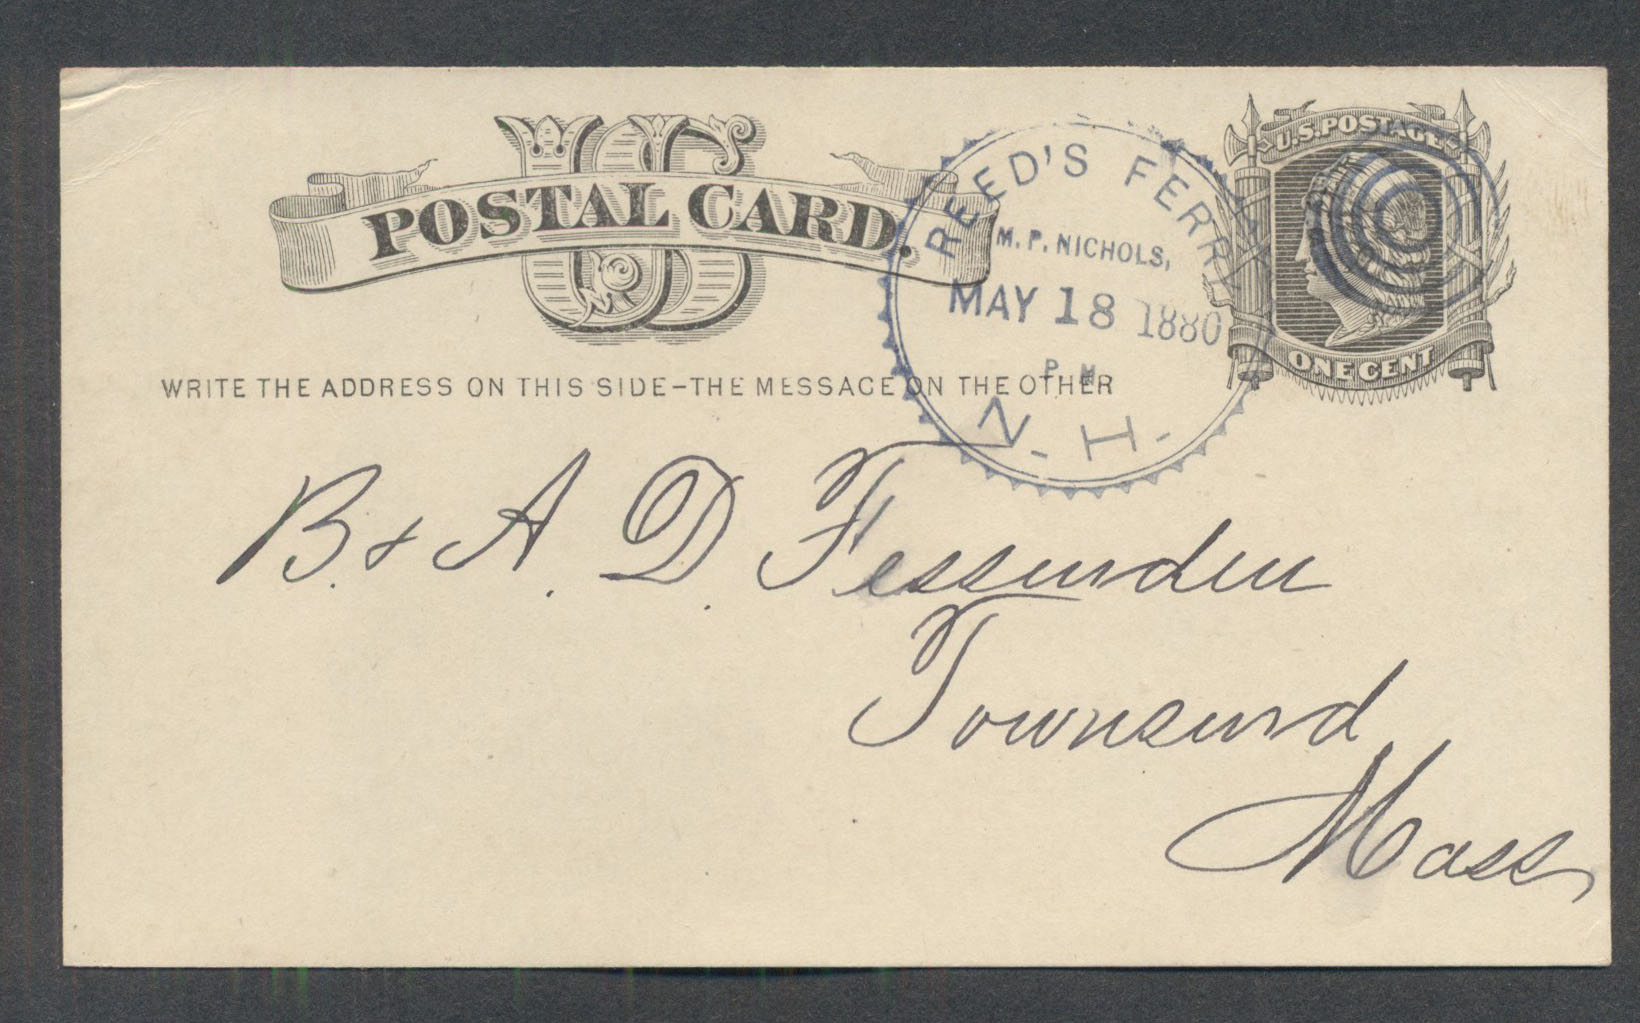 US
POSTAL CARD.
WRITE THE ADDRESS ON THIS SIDE-THE MESSAGE ON THE OTHER
REED'S FERRY
M. P. NICHOLS,
MAY 18 1880
P. M.
N. H.
U.S. POSTAGE
ONE CENT
B. & A. D. Fessenden
Townsend
Mass